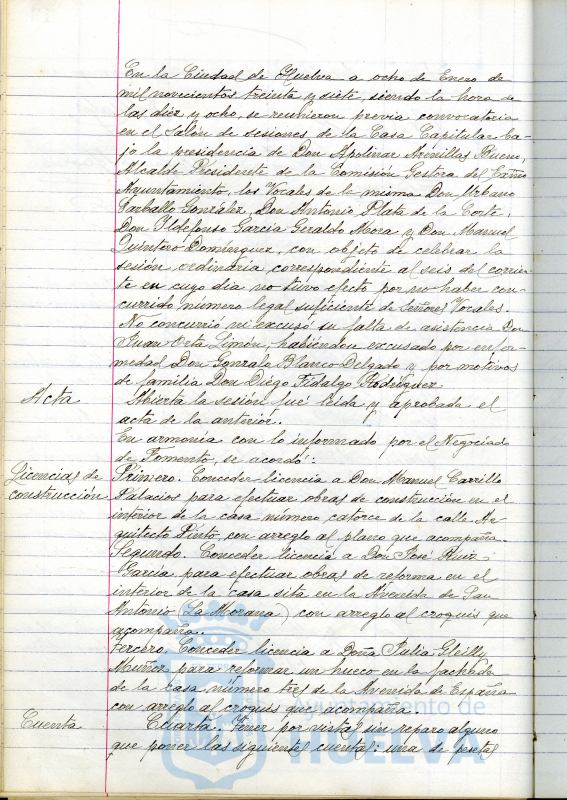 En la Ciudad de Huelva a ocho de Enero de
mil novecientos treinta y siete, siendo la hora de
las diez y ocho, se reunieron previa convocatoria
en el Salón de sesiones de la Casa Capitular ba-
jo la presidencia de Don Apolinar Arenillas Bueno,
Alcalde Presidente de la Comisión Gestora del Excmo
Ayuntamiento, los Vocales de la misma Don Urbano
Carballo González, Don Antonio Plata de la Corte,
Don Ildefonso García Geraldo Mora y Don Manuel
Quintero Domínguez, con objeto de celebrar la
sesión ordinaria correspondiente al seis del corrien-
te en cuyo dia no tuvo efecto por no haber con-
currido número legal suficiente de Señores Vocales.
No concurrió ni excusó su falta de asistencia Don
Juan Orta Limón, habiendou excusado por enfer-
medad Don Gonzalo Blanco Delgado y por motivos
de familia Don Diego Fidalgo Rodríguez
Acta
Abierta la sesión fué leida y aprobada el
acta de la anterior.
En armonia con lo informado por el Negociado
de Fomento, se acordó:
Licencias de
construcción
Primero. Conceder licencia a Don Manuel Carrillo
Palacios para efectuar obras de construcción en el
interior de la casa número catorce de la calle Ar-
quitecto Pinto, con arreglo al plano que acompaña.
Segundo. Conceder licencia a Don José Ruiz
García para efectuar obras de reforma en el
interior de la casa sita en la Avenida de San
Antonio (La Morana) con arreglo al croquis que
acompaña.
Tercero. Conceder licencia a Doña Julia
Muñoz para reformar un hueco en la fachada
de la casa número tres de la Avenida de España
con arreglo al croquis que acompaña.
Cuenta
Cuarta. Tener por vista sin reparo alguno
que poner las siguientes cuentas: una de pesetas
Ayuntamiento de
HUELVA